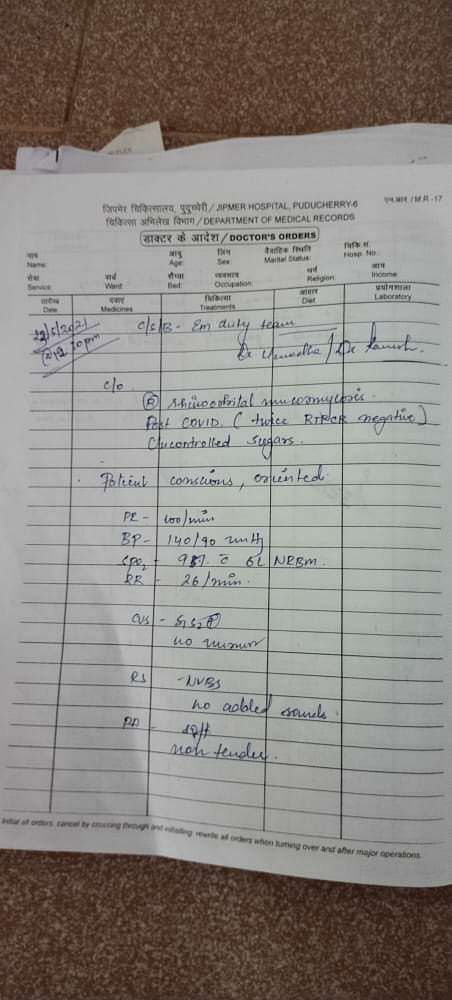 एन.आर. / M.R.-17
जिपमेर चिकित्सालय, पुदुच्चेरी / JIPMER HOSPITAL, PUDUCHERRY-6
चिकित्सा अभिलेख विभाग / DEPARTMENT OF MEDICAL RECORDS
डाक्टर के आदेश / DOCTOR'S ORDERS
नाम आयु लिंग वैवाहिक स्थिति चिकि सं.
Name: Age: Sex: Marital Status: Hosp. No.:
सेवा वार्ड शैय्या व्यवसाय धर्म आय
Service: Ward: Bed: Occupation: Religion: Income:
तारीख दवाएं चिकित्सा आहार प्रयोगशाला
Date Medicines Treatments Diet Laboratory
C/S/B - Em duty team
Dr
c/o
(R) rhinoorbital mucormycosis.
Post COVID. (twice RTPCR negative)
Uncontrolled sugars.
Patient conscious, oriented.
PR - 100/min
BP - 140/90 mmHg
SpO2 - 98% c 6L NRBM.
RR - 26/min.
CVS - S1S2
no murmur
RS - NVBS
no added sounds.
PA - soft
non tender.
Initial of orders, cancel by crossing through and initialing rewrite all orders when turning over and after major operations.